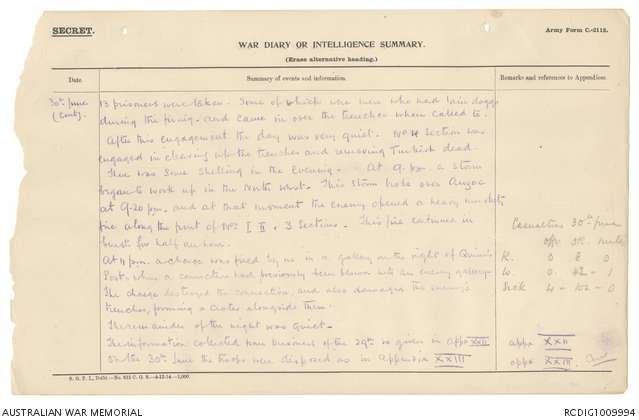 SECRET.
Army Form C.-2118.
WAR DIARY OR INTELLIGENCE SUMMARY.
(Erase alternative heading.)
Date.
Summary of events and information.
Remarks and references to Appendices.
30th June
(Cont).
13 prisoners were taken. Some of which were men who had lain doggo
during the firing and came in over the trenches when called to.
After this engagement the day was very quiet. No 4 Section was
engaged in clearing up the trenches and removing Turkish dead.
There was some shelling in the Evening. At 9. p.m. a storm
began to work up in the North West. This storm broke over Anzac
at 9.20 pm. and at that moment the enemy opened a heavy musketry
fire along the front of Nos I II & 3 Sections. This fire continued in
bursts for half an hour.
At 11 p.m. a charge was fired by us in a gallery on the right of Quinn's
Post, where a connection had previously been blown into an enemy gallery.
The charge destroyed the connection, and also damaged the enemy's
trenches, forming a crater alongside them.
The remainder of the night was quiet.
The information collected from prisoners of the 29th is given in appx XXII
On the 30th June the troops were disposed as in appendix XXIII
Casualties 30th June
Off. OR.
K. 0 8 0
W. 0. 42 - 1
Sick 4 - 102 - 0
appx XXII
appx XXIII
S. G. P. I., Delhi
AUSTRALIAN WAR MEMORIAL
RCDIG1009994